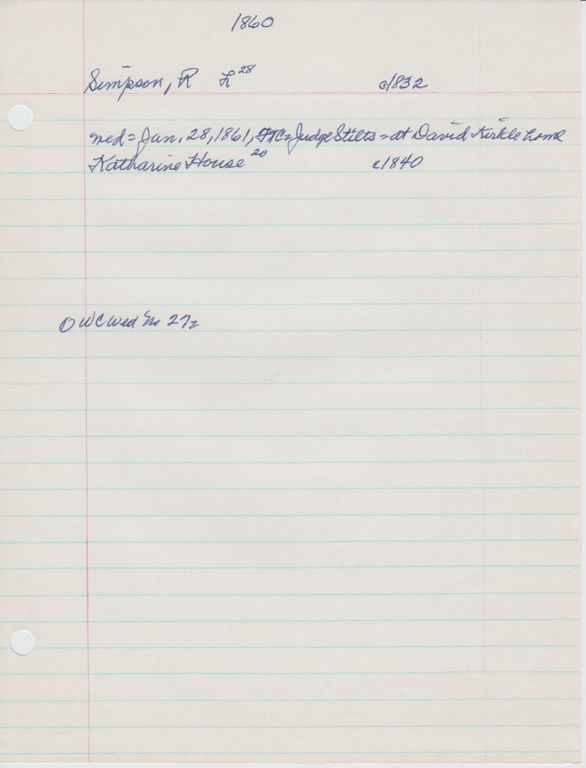 1860
Simpson, R L 28 c/832
med = Jan. 28, 1861, = Judge Stilts = at David Kirkle home
Katharine House 20 c1840
O WC Wed 272